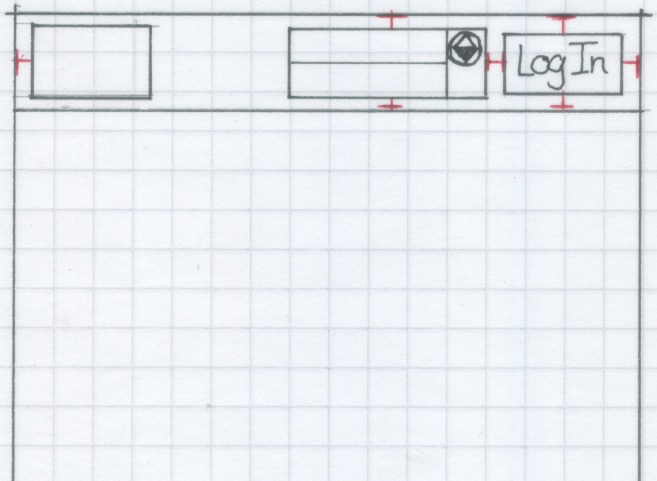 Log In